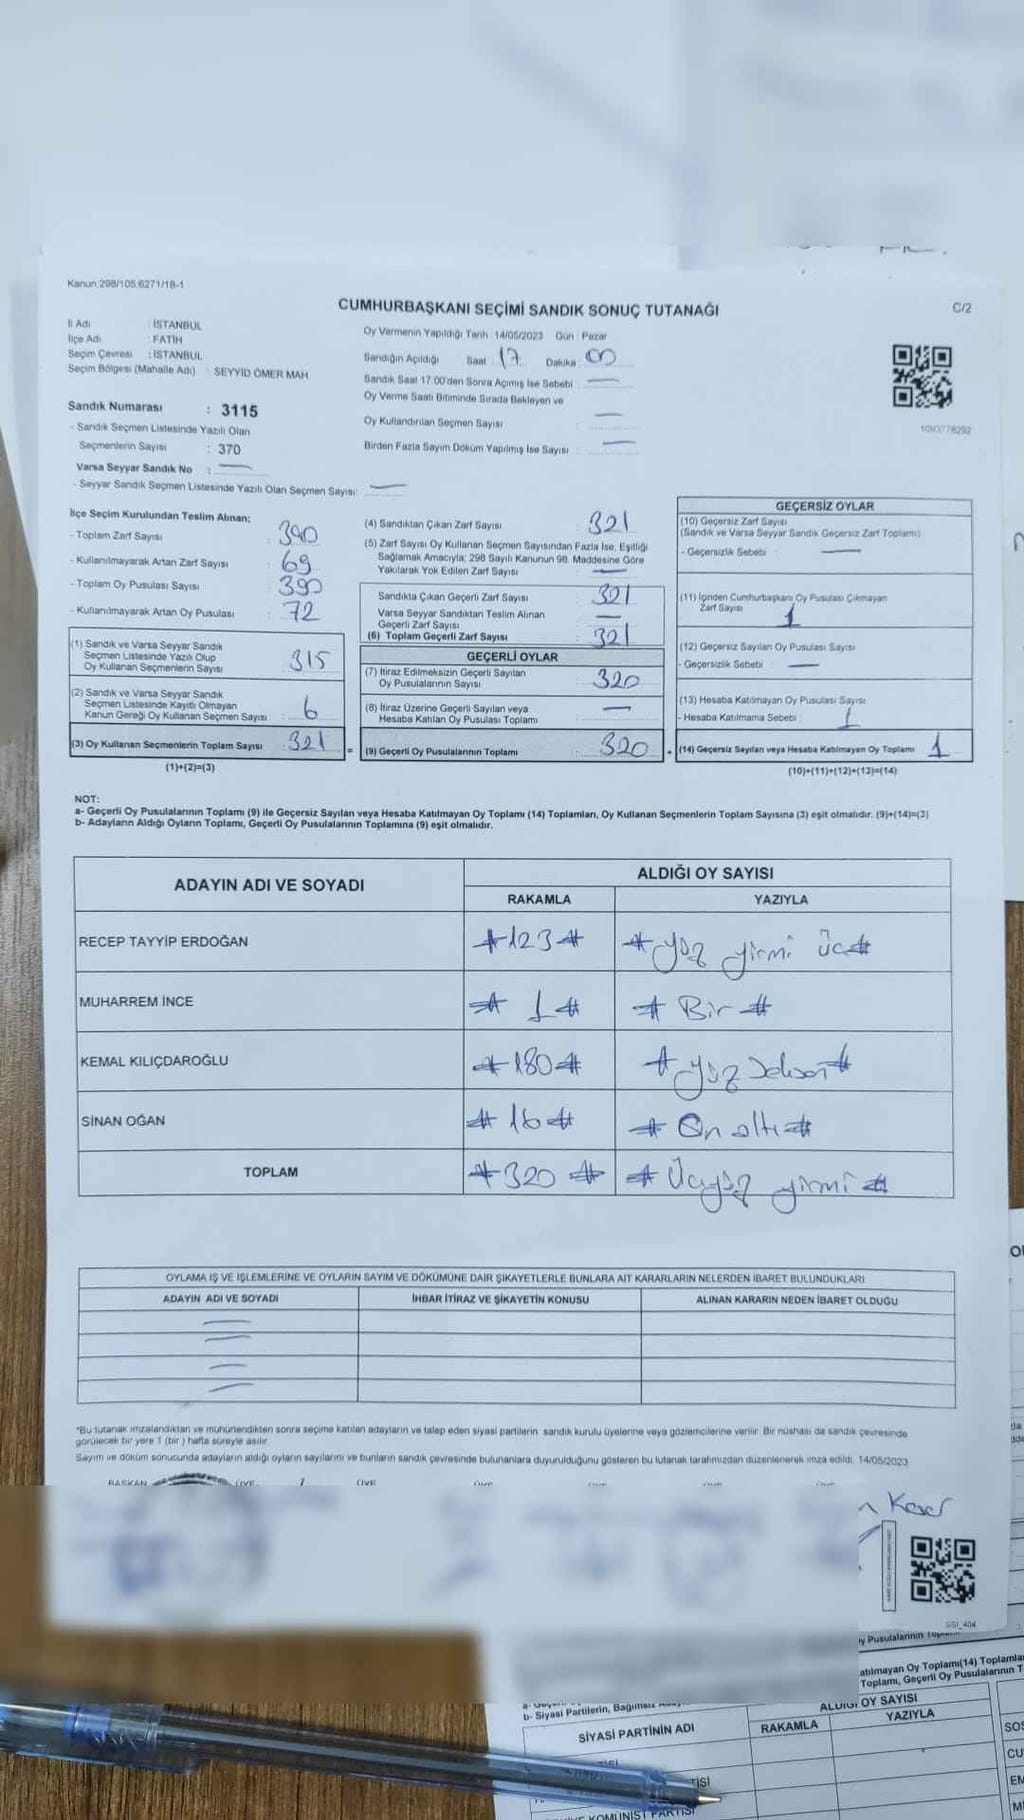 Kanun:298/105;6271/18-1
CUMHURBAŞKANI SEÇİMİ SANDIK SONUÇ TUTANAĞI
C/2
İl Adı : İSTANBUL
İlçe Adı : FATİH
Seçim Çevresi : İSTANBUL
Seçim Bölgesi (Mahalle Adı) SEYYİD ÖMER MAH.
Sandık Numarası : 3115
- Sandık Seçmen Listesinde Yazılı Olan
Seçmenlerin Sayısı : 370
Varsa Seyyar Sandık No : —
- Seyyar Sandık Seçmen Listesinde Yazılı Olan Seçmen Sayısı: —
Oy Vermenin Yapıldığı Tarih :14/05/2023 Gün : Pazar
Sandığın Açıldığı Saat : 17 Dakika : 00
Sandık Saat 17.00'den Sonra Açımış İse Sebebi : —
Oy Verme Saati Bitiminde Sırada Bekleyen ve
Oy Kullandırılan Seçmen Sayısı : —
Birden Fazla Sayım Döküm Yapılmış İse Sayısı : —
1093778292
İlçe Seçim Kurulundan Teslim Alınan;
- Toplam Zarf Sayısı : 390
- Kullanılmayarak Artan Zarf Sayısı : 69
- Toplam Oy Pusulası Sayısı : 390
- Kullanılmayarak Artan Oy Pusulası : 72
(1) Sandık ve Varsa Seyyar Sandık
Seçmen Listesinde Yazılı Olup
Oy Kullanan Seçmenlerin Sayısı : 315
(2) Sandık ve Varsa Seyyar Sandık
Seçmen Listesinde Kayıtlı Olmayan
Kanun Gereği Oy Kullanan Seçmen Sayısı : 6
(3) Oy Kullanan Seçmenlerin Toplam Sayısı : 321
(1)+(2)=(3)
(4) Sandıktan Çıkan Zarf Sayısı : 321
(5) Zarf Sayısı Oy Kullanan Seçmen Sayısından Fazla İse, Eşitliği
Sağlamak Amacıyla; 298 Sayılı Kanunun 98. Maddesine Göre
Yakılarak Yok Edilen Zarf Sayısı : —
Sandıkta Çıkan Geçerli Zarf Sayısı : 321
Varsa Seyyar Sandıktan Teslim Alınan
Geçerli Zarf Sayısı : —
(6) Toplam Geçerli Zarf Sayısı : 321
GEÇERLİ OYLAR
(7) İtiraz Edilmeksizin Geçerli Sayılan
Oy Pusulalarının Sayısı : 320
(8) İtiraz Üzerine Geçerli Sayılan veya
Hesaba Katılan Oy Pusulası Toplamı : —
= (9) Geçerli Oy Pusulalarının Toplamı : 320
GEÇERSİZ OYLAR
(10) Geçersiz Zarf Sayısı
(Sandık ve Varsa Seyyar Sandık Geçersiz Zarf Toplamı)
- Geçersizlik Sebebi : —
(11) İçinden Cumhurbaşkanı Oy Pusulası Çıkmayan
Zarf Sayısı : 1
(12) Geçersiz Sayılan Oy Pusulası Sayısı
- Geçersizlik Sebebi : —
(13) Hesaba Katılmayan Oy Pusulası Sayısı
- Hesaba Katılmama Sebebi : 1
+ (14) Geçersiz Sayılan veya Hesaba Katılmayan Oy Toplamı : 1
(10)+(11)+(12)+(13)=(14)
NOT:
a- Geçerli Oy Pusulalarının Toplamı (9) ile Geçersiz Sayılan veya Hesaba Katılmayan Oy Toplamı (14) Toplamları, Oy Kullanan Seçmenlerin Toplam Sayısına (3) eşit olmalıdır. (9)+(14)=(3)
b- Adayların Aldığı Oyların Toplamı, Geçerli Oy Pusulalarının Toplamına (9) eşit olmalıdır.
ADAYIN ADI VE SOYADI
ALDIĞI OY SAYISI
RAKAMLA YAZIYLA
RECEP TAYYİP ERDOĞAN #123# #yüz yirmi üç#
MUHARREM İNCE # 1# # Bir #
KEMAL KILIÇDAROĞLU #180# # yüz seksen#
SİNAN OĞAN # 16 # # On altı #
TOPLAM #320 # # Üçyüz yirmi #
OYLAMA İŞ VE İŞLEMLERİNE VE OYLARIN SAYIM VE DÖKÜMÜNE DAİR ŞİKAYETLERLE BUNLARA AİT KARARLARIN NELERDEN İBARET BULUNDUKLARI
ADAYIN ADI VE SOYADI İHBAR İTİRAZ VE ŞİKAYETİN KONUSU ALINAN KARARIN NEDEN İBARET OLDUĞU
*Bu tutanak imzalandıktan ve mühürlendikten sonra seçime katılan adayların ve talep eden siyasi partilerin sandık kurulu üyelerine veya gözlemcilerine verilir. Bir nüshası da sandık çevresinde
görülecek bir yere 1 (bir ) hafta süreyle asılır.
Sayım ve döküm sonucunda adayların aldığı oyların sayılarını ve bunların sandık çevresinde bulunanlara duyurulduğunu gösteren bu tutanak tarafımızdan düzenlenerek imza edildi. 14/05/2023
BAŞKAN ÜYE ÜYE ÜYE ÜYE ÜYE
SSİ_404
y Pusulalarının
atılmayan Oy Toplamı(14) Toplamla
Toplamı, Geçerli Oy Pusulalarının T
b- Siyasi Partilerin,
SİYASİ PARTİNİN ADI
ALDIĞI OY SAYISI
RAKAMLA YAZIYLA
KOMÜNİST PARTİSİ